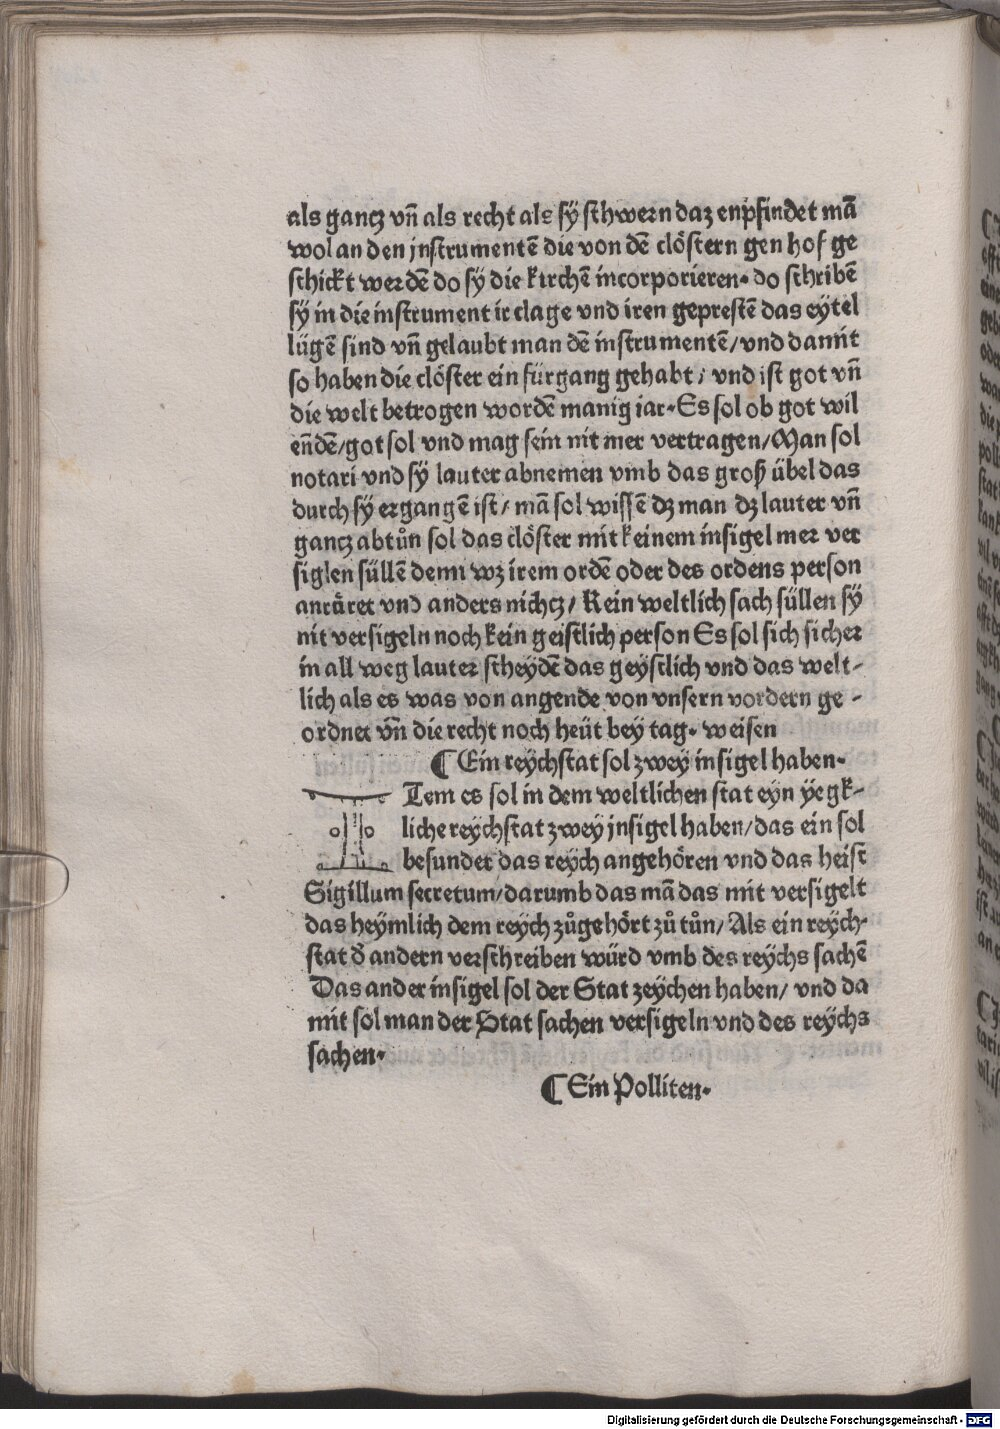 als gancz vñ als recht als sÿ schwern daz enpfindet mā
wol an den jnstrumentē die von dē clöstern gen hof ge
schickt werdē do sÿ die kirchē incorporieren· do schribē
sÿ in die instrument ir clage vnd iren geprestē das eytel
lügē sind vñ gelaubt man dē instrumentē/ vnd damit
so haben die clöster ein fürgang gehabt / vnd ist got vñ
die welt betrogen wordē manig iar· Es sol ob got wil
eñdē/ got sol vnd mag sein nit mer vertragen/ Man sol
notari vnd sÿ lauter abnemen vmb das groß übel das
durch sÿ ergangē ist/ mā sol wissē dz man dz lauter vñ
gancz abtůn sol das clöster mit keinem insigel mer ver
siglen süllē denn wz irem ordē oder des ordens person
anräret vnd anders nichcz/ Kein weltlich sach süllen sÿ
nit versigeln noch kein geistlich person Es sol sich sicher
in all weg lauter scheydē das geystlich vnd das welt-
lich als es was von angende von vnsern vordern ge -
ordnet vñ die recht noch heüt bey tag· weisen
¶ Ein reÿchstat sol zwey insigel haben·
ITem es sol in dem weltlichen stat eyn yegk-
liche reÿchstat zwey jnsigel haben/ das ein sol
besunder das reÿch angehören vnd das heist
Sigillum secretum/ darumb das mā das mit versigelt
das heÿmlich dem reÿch zůgehört zů tůn/ Als ein reÿch-
stat đ andern verschreiben würd vmb des reÿchs sachē
Das ander insigel sol der Stat zeÿchen haben/ vnd da
mit sol man der Stat sachen versigeln vnd des reÿchs
sachen·
¶ Ein Polliten·
Digitalisierung gefördert durch die Deutsche Forschungsgemeinschaft - DFG